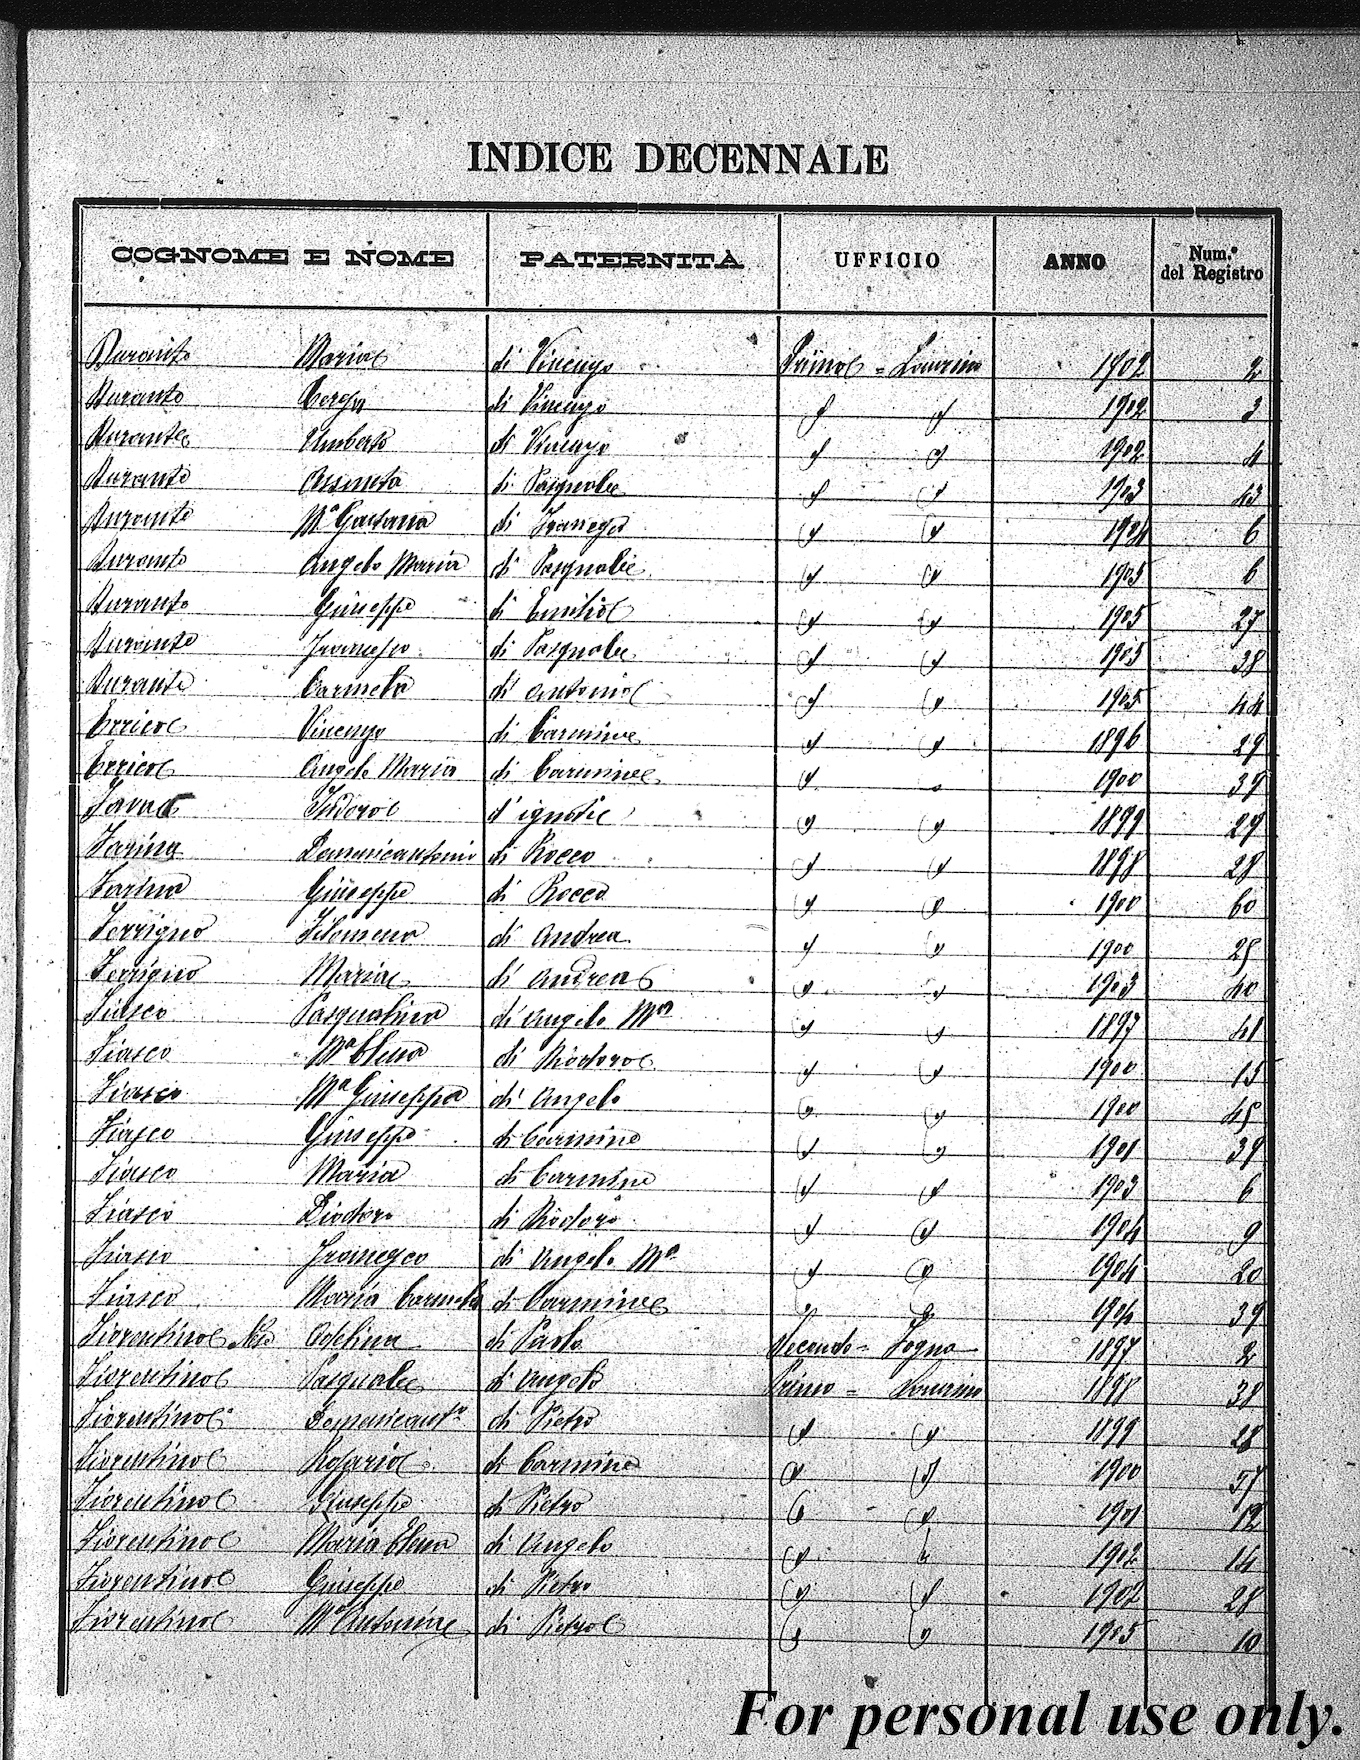 INDICE DECENNALE
COGNOME E NOME PATERNITÀ UFFICIO ANNO Num.° del Registro
Durante Maria di Vincenzo Primo = Laurino 1902 2
Durante di Vincenzo " " 1902 3
Durante Umberto di Vincenzo " " 1902 4
Durante Assunta di Pasquale " " 1903 43
Durante Mª Gaetana di Francesco " " 1904 6
Durante Angelo Maria di Pasquale " " 1905 6
Durante Giuseppe di Emilio " " 1905 27
Durante Francesco di Pasquale " " 1905 38
Durante Carmela di Antonio " " 1905 44
Errico Vincenzo di Carmine " " 1896 29
Errico Angelo Maria di Carmine " " 1900 39
Isidoro d'ignoti " " 1899 29
Farina Domenicantonio di Rocco " " 1898 28
Farina Giuseppe di Rocco " " 1900 60
Ferrigno Filomena di Andrea " " 1900 25
Ferrigno Maria di Andrea " " 1903 40
Fiasco Pasqualina di Angelo Mª " " 1897 41
Fiasco Mª Elena di Diodoro " " 1900 15
Fiasco Mª Giuseppa di Angelo " " 1900 45
Fiasco Giuseppe di Carmine " " 1901 39
Fiasco Maria di Carmine " " 1903 6
Fiasco Diodoro di Diodoro " " 1904 9
Fiasco Francesco di Angelo Mª " " 1904 20
Fiasco Maria Carmela di Carmine " " 1904 39
Fiorentino Adelina di Paolo Secondo = Fogna 1897 2
Fiorentino Pasquale di Angelo Primo = Laurino 1898 38
Fiorentino Domenicant.º di Pietro " " 1899 28
Fiorentino Rosario di Carmine " " 1900 57
Fiorentino Giuseppe di Pietro " " 1901 12
Fiorentino Maria Elena di Angelo " " 1902 14
Fiorentino Giuseppe di Pietro " " 1902 28
Fiorentino Mª Antonia di Pietro " " 1905 10
For personal use only.